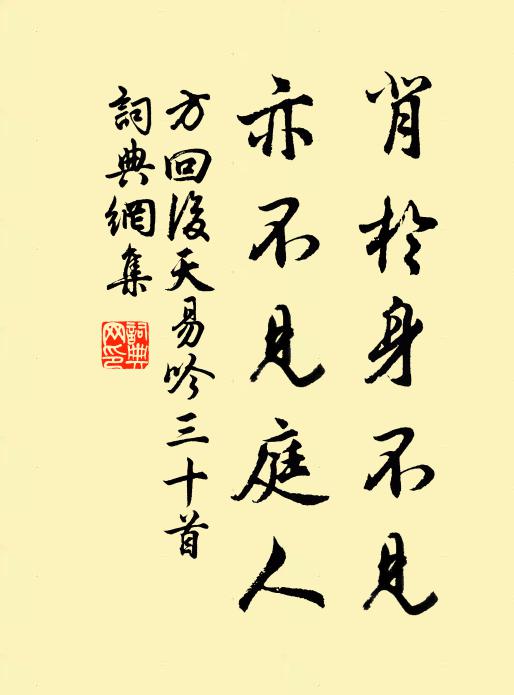 肯於身不見
亦不見庭人
方回後天易吟三十首
詞典網集
詞典網印